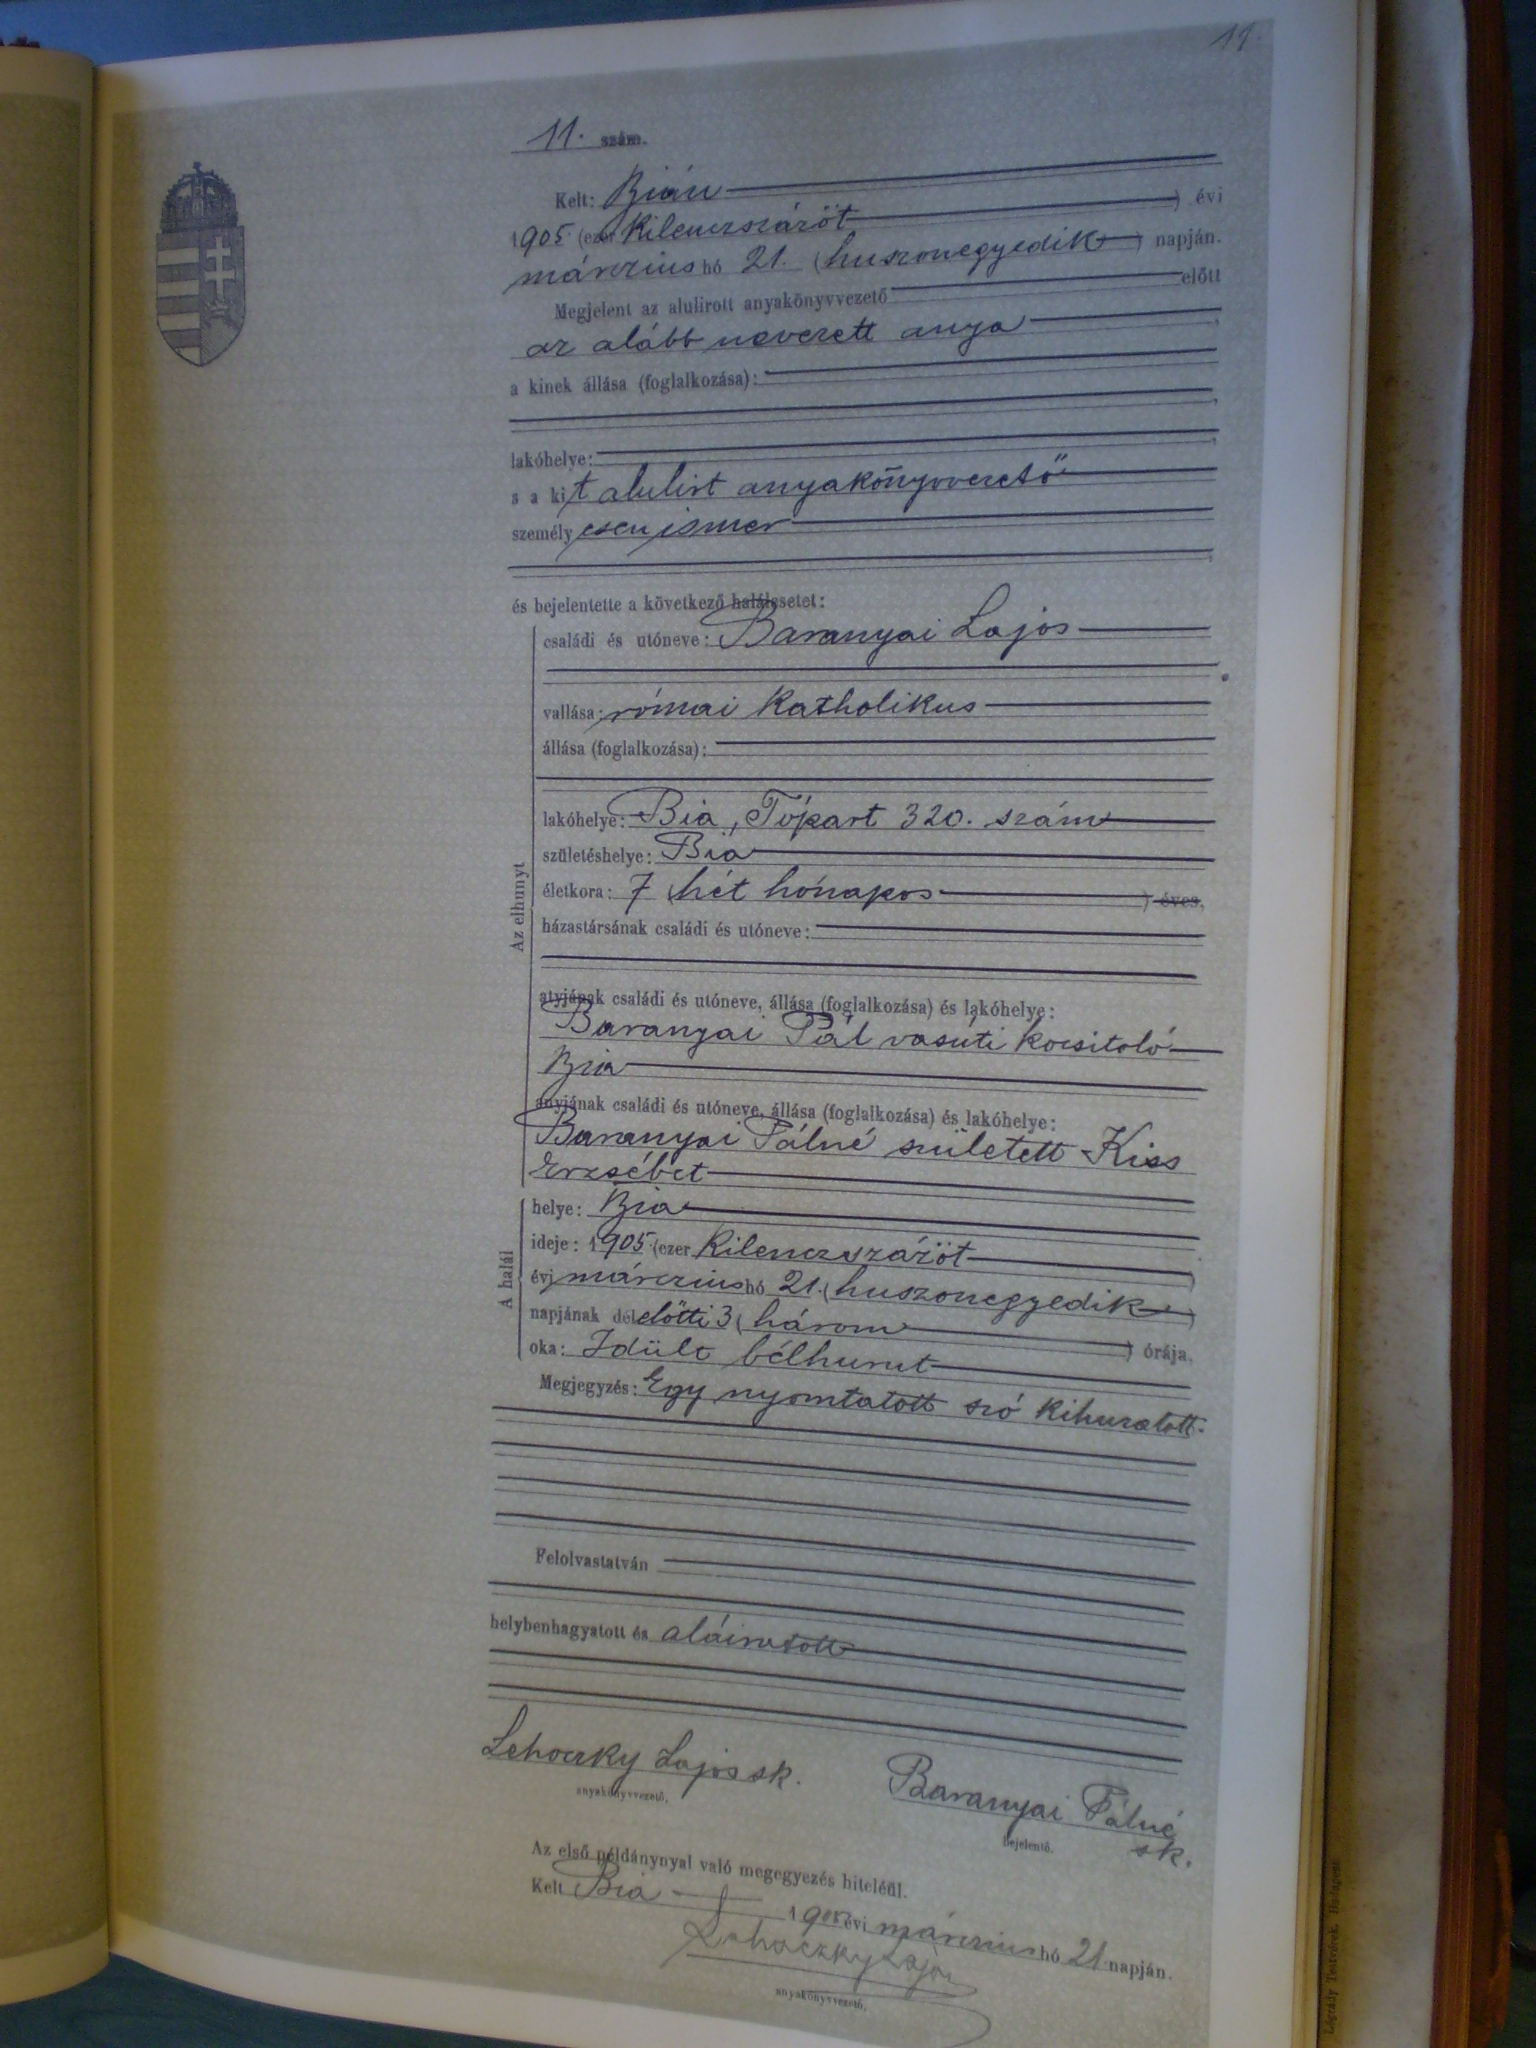 11. szám.
Kelt: Bián
1905 (ezer kilenczszázöt) évi
márczius hó 21. (huszonegyedik) napján.
Megjelent az alulirott anyakönyvvezető előtt
az alább nevezett anya
a kinek állása (foglalkozása):
lakóhelye:
s a kit alulirt anyakönyvvezető
személyesen ismer
és bejelentette a következő halálesetet:
Az elhunyt
családi és utóneve: Baranyai Lajos
vallása: római katholikus
állása (foglalkozása):
lakóhelye: Bia, Tópart 320. szám
születéshelye: Bia
életkora: 7 (hét hónapos) éves,
házastársának családi és utóneve:
atyjának családi és utóneve, állása (foglalkozása) és lakóhelye:
Baranyai Pál vasúti kocsitoló
Bia
anyjának családi és utóneve, állása (foglalkozása) és lakóhelye:
Baranyai Pálné született Kiss
Erzsébet
A halál
helye: Bia
ideje: 1905 (ezer kilenczszázöt)
évi márczius hó 21. (huszonegyedik)
napjának délelőtti 3 (három) órája,
oka: Idült bélhurut
Megjegyzés: Egy nyomtatott szó kihuzatott.
Felolvastatván
helybenhagyatott és aláiratott
Lehoczky Lajos sk.
anyakönyvvezető,
Baranyai Pálné
sk.
bejelentő.
Az első példánynyal való megegyezés hiteléül.
Kelt Bia 1905 évi márczius hó 21 napján.
Lehoczky Lajos
anyakönyvvezető,
Légrády Testvérek, Budapest